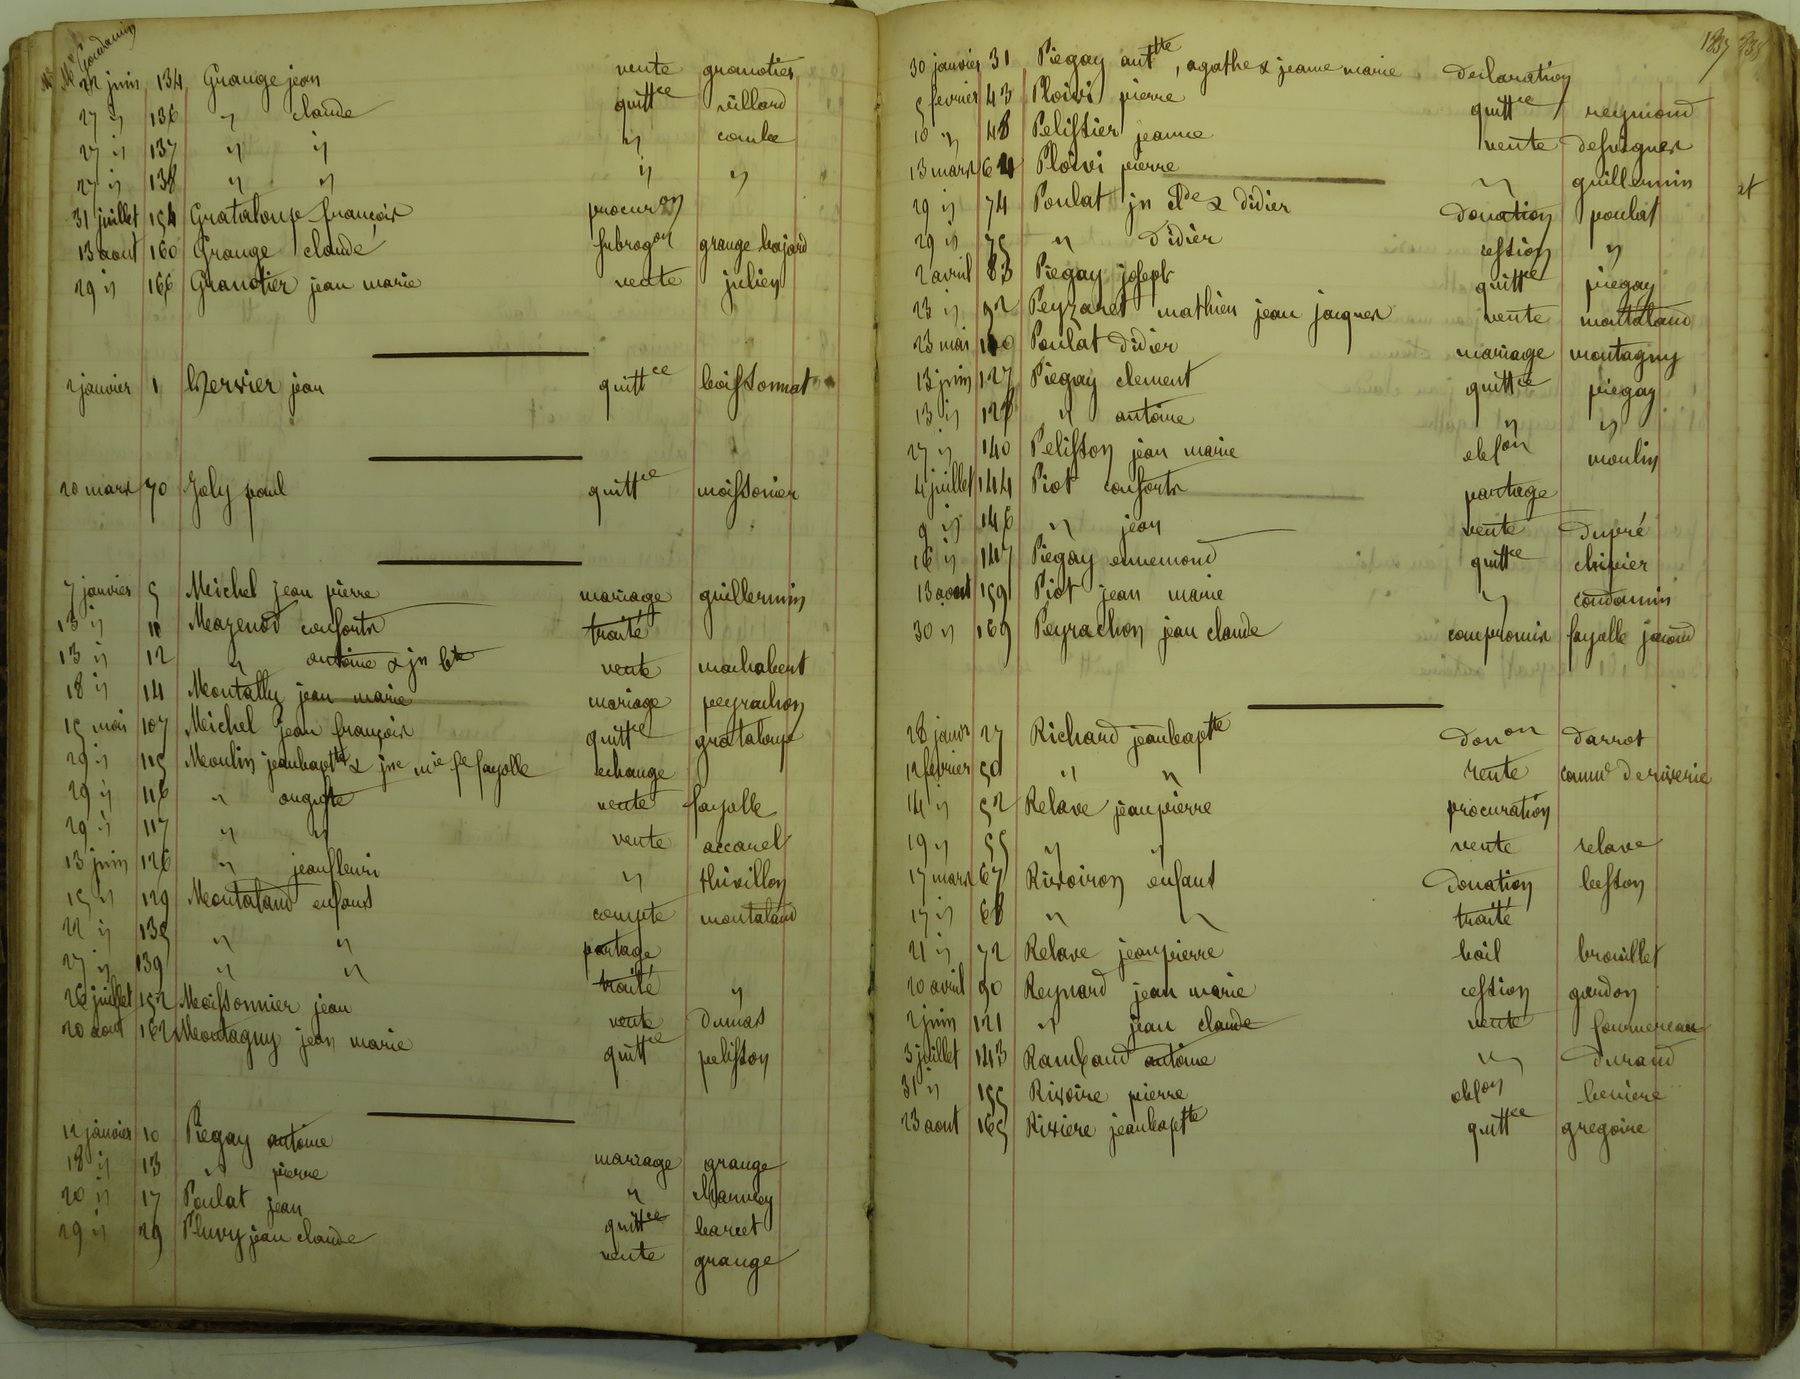 Me Condamin
22 juin 134 Grange jean vente granotier
27 〃 136 〃 claude quittce villard
27 〃 137 〃 〃 〃 combe
27 〃 138 〃 〃 〃 〃
31 juillet 154 Grataloup françois procuron
13 aout 160 Grange claude subrogon grange bajard
29 〃 166 Granotier jean marie vente julien
2 janvier 1 Hervier jean quittce boissonnat
20 mars 70 Joly paul quittce moissonier
7 janvier 5 Michel jean pierre mariage guillermin
13 〃 11 Mazenod consorts traité
13 〃 12 〃 antoine & jn bte vente machabert
18 〃 14 Montally jean marie mariage peyrachon
15 mai 107 Michel jean françois quittce grataloup
29 〃 115 Moulin jeanbaptte & jne mie fe fayolle echange
29 〃 116 〃 auguste vente fayolle
29 〃 117 〃 〃 vente accarel
13 juin 126 〃 jeanfleuri 〃 thivillon
15 〃 129 Montaland enfants compte montaland
22 〃 135 〃 〃 partage
27 〃 139 〃 〃 traité 〃
26 juillet 152 Moissonnier jean vente dumas
20 aout 162 Montagny jean marie quittce pelisson
12 janvier 10 Piegay antoine mariage grange
18 〃 13 〃 pierre 〃
20 〃 17 Poulat jean quittce barcet
29 〃 29 Pluvy jean claude vente grange
1837 838
30 janvier 31 Piegay antte, agathe & jeanne marie declaration
5 fevrier 43 Ploivi pierre quittce reymond
10 〃 48 Pelissier jeanne vente desvignes
13 mars 64 Ploivi pierre 〃 guillermin et
29 〃 74 Poulat jn clde & didier donation poulat
29 〃 75 〃 didier cession 〃
2 avril 83 Piegay joseph quittce piegay
23 〃 92 Peyzaret mathieu jean jacques vente montaland
23 mai 110 Poulat didier mariage montagny
13 juin 127 Piegay clement quittce piegay
13 〃 128 〃 antoine 〃 〃
27 〃 140 Pelisson jean marie oblon moulin
4 juillet 144 Piot consorts partage
9 〃 146 〃 jean vente dupré
16 〃 147 Piegay ennemond quittce chipier
13 aout 159 Piot jean marie 〃 condamin
30 〃 169 Peyrachon jean claude compromis fayolle jacond
28 janvr 27 Richard jeanbaptte donon darrot
12 fevrier 50 〃 〃 vente commue de riverie
14 〃 52 Relave jeanpierre procuration
19 〃 55 〃 〃 vente relave
17 mars 67 Rivoiron enfant donation besson
17 〃 68 〃 〃 traité
21 〃 72 Relave jeanpierre bail brouillet
20 avril 90 Reynard jean marie cession gardon
2 juin 121 〃 jean claude vente fournereau
3 juillet 143 Rambaud antoine 〃 durand
31 〃 155 Rivoire pierre oblon beniere
23 aout 165 Riviere jeanbaptte quittce gregoire